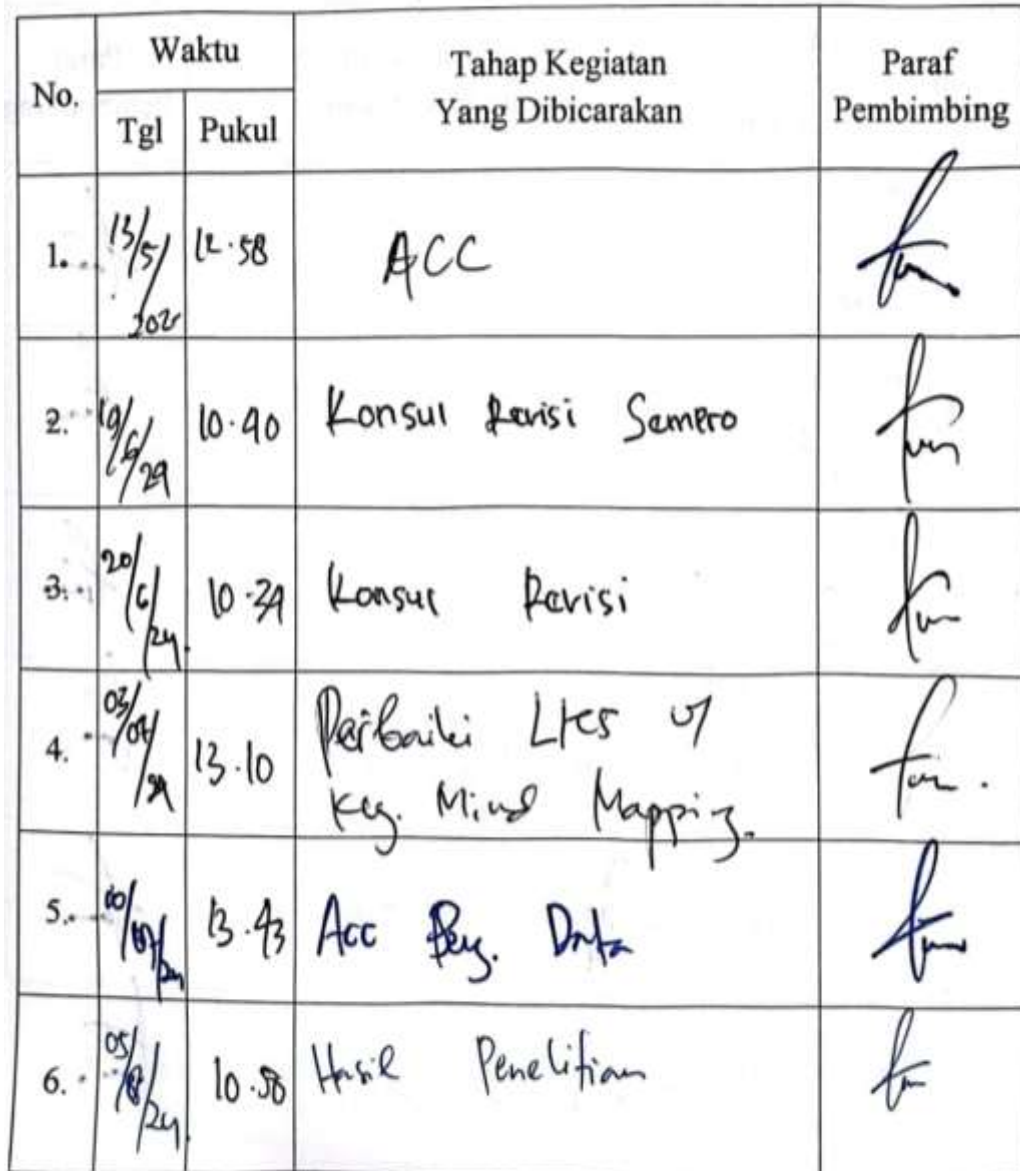 No. Waktu Tahap Kegiatan Yang Dibicarakan Paraf Pembimbing
Tgl Pukul
1. 13/5/202 12.58 ACC
2. 19/6/24 10.40 Konsul Revisi Sempro
3. 20/6/24. 10.34 Konsul Revisi
4. 03/07/24 13.10 Perbaiki LKS u/
Keg. Mind Mapping.
5. 10/07/24 13.43 Acc Peng. Data
6. 05/8/24. 10.50 Hasil Penelitian